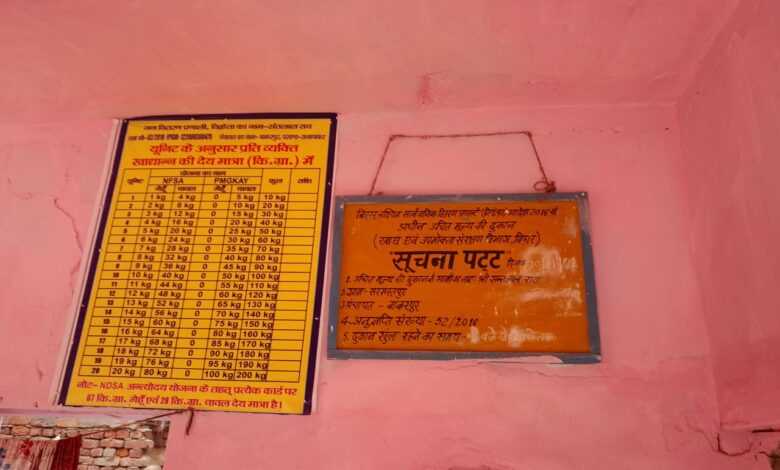 जन वितरण प्रणाली, विक्रेता का नाम-संतलाल राय
यूनिट के अनुसार प्रति व्यक्ति
खाद्यान्न की देय मात्रा (कि.ग्रा.) में
यूनिट योजना का नाम कुल राशि
NFSA PMGKAY
गेहूँ चावल गेहूँ चावल
1 1 kg 4 kg 0 5 kg 10 kg
2 2 kg 8 kg 0 10 kg 20 kg
3 3 kg 12 kg 0 15 kg 30 kg
4 4 kg 16 kg 0 20 kg 40 kg
5 5 kg 20 kg 0 25 kg 50 kg
6 6 kg 24 kg 0 30 kg 60 kg
7 7 kg 28 kg 0 35 kg 70 kg
8 8 kg 32 kg 0 40 kg 80 kg
9 9 kg 36 kg 0 45 kg 90 kg
10 10 kg 40 kg 0 50 kg 100 kg
11 11 kg 44 kg 0 55 kg 110 kg
12 12 kg 48 kg 0 60 kg 120 kg
13 13 kg 52 kg 0 65 kg 130 kg
14 14 kg 56 kg 0 70 kg 140 kg
15 15 kg 60 kg 0 75 kg 150 kg
16 16 kg 64 kg 0 80 kg 160 kg
17 17 kg 68 kg 0 85 kg 170 kg
18 18 kg 72 kg 0 90 kg 180 kg
19 19 kg 76 kg 0 95 kg 190 kg
20 20 kg 80 kg 0 100 kg 200 kg
नोट- NDSA अन्त्योदय योजना के तहत् प्रत्येक कार्ड पर
07 कि.ग्रा. गेहूँ एवं 28 कि.ग्रा. चावल देय मात्रा है।
बिहार लक्षित सार्वजनिक वितरण प्रणाली 2016 के
अधीन उचित मूल्य की दुकान
(खाद्य एवं उपभोक्ता संरक्षण विभाग, बिहार)
सूचना पट्ट
1. उचित मूल्य की दुकान के स्वामी का नाम- श्री राय
2. ग्राम- सरमस्तपुर
3. पंचायत - बाकरपुर
4. अनुज्ञप्ति संख्या - 52/2016
5. दुकान खुला रहने का समय- बजे से